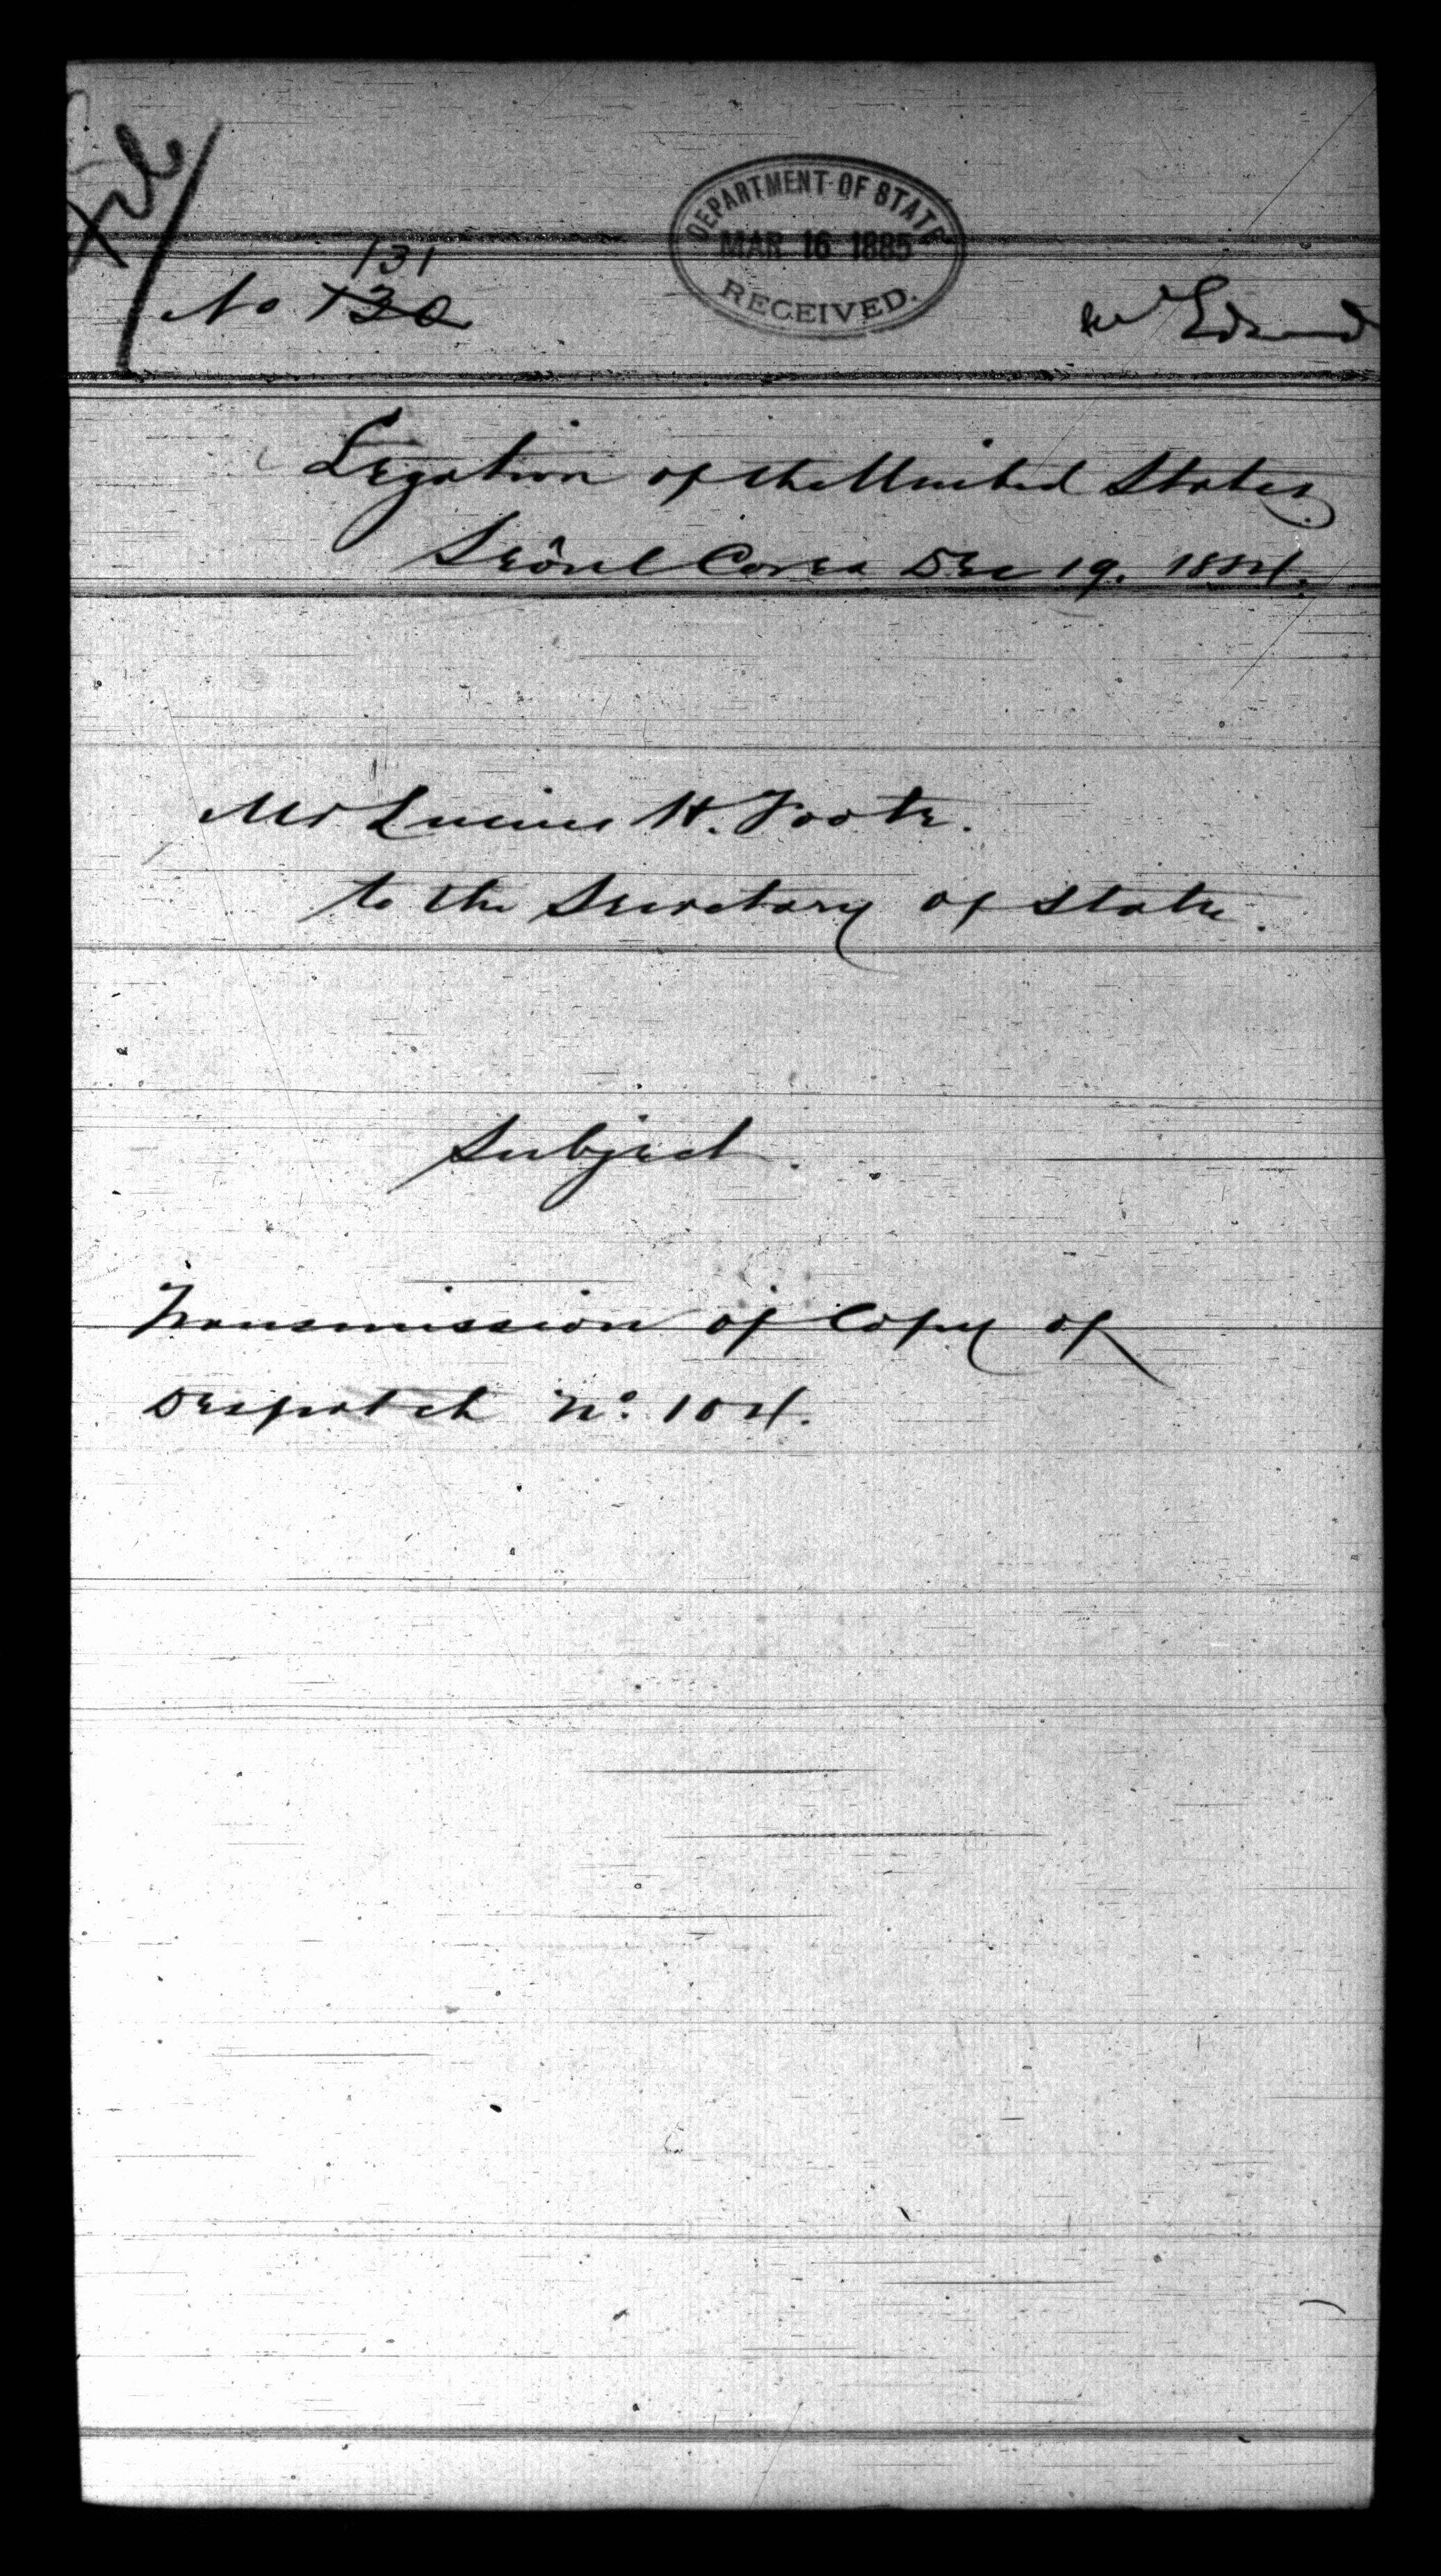 File
DEPARTMENT OF STATE
MAR 16 1885
RECEIVED.
131
No 130
Legation of the United States
Seôul Corea Dec 19. 1884.
Mr Lucius H. Foote.
to the Secretary of State.
Subject.
Transmission of Copy of
Despatch No. 104.